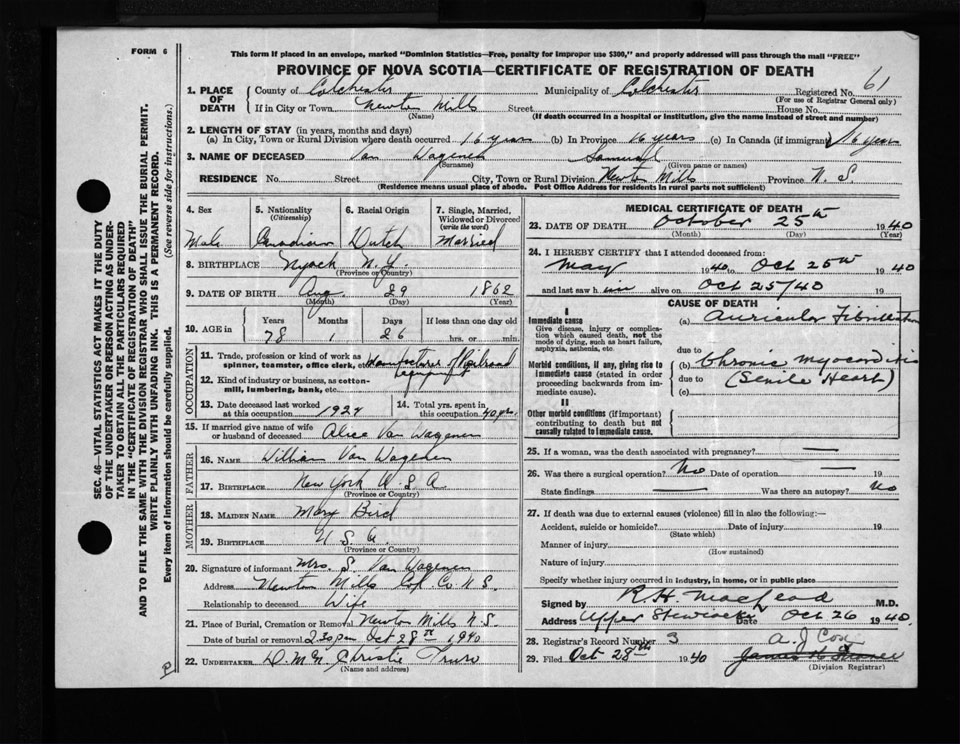 FORM 6
This form if placed in an envelope, marked "Dominion Statistics—Free, penalty for improper use $300," and properly addressed will pass through the mail "FREE"
PROVINCE OF NOVA SCOTIA—CERTIFICATE OF REGISTRATION OF DEATH
SEC. 46—VITAL STATISTICS ACT MAKES IT THE DUTY
OF THE UNDERTAKER OR PERSON ACTING AS UNDER-
TAKER TO OBTAIN ALL THE PARTICULARS REQUIRED
IN THE "CERTIFICATE OF REGISTRATION OF DEATH"
AND TO FILE THE SAME WITH THE DIVISION REGISTRAR WHO SHALL ISSUE THE BURIAL PERMIT.
WRITE PLAINLY WITH UNFADING INK. THIS IS A PERMANENT RECORD.
Every item of information should be carefully supplied. (See reverse side for instructions.)
1. PLACE OF DEATH County of Colchester Municipality of Colchester Registered No. 61
(For use of Registrar General only)
If in City or Town Newton Mills Street House No.
(Name) (If death occurred in a hospital or institution, give the name instead of street and number)
2. LENGTH OF STAY (in years, months and days)
(a) In City, Town or Rural Division where death occurred 16 years (b) In Province 16 years (c) In Canada (if immigrant) 16 years
3. NAME OF DECEASED Van Wagenen Samuel
(Surname) (Given name or names)
RESIDENCE No. Street City, Town or Rural Division Newton Mills Province N. S.
(Residence means usual place of abode. Post Office Address for residents in rural parts not sufficient)
4. Sex 5. Nationality (Citizenship) 6. Racial Origin 7. Single, Married, Widowed or Divorced (write the word)
Male Canadian Dutch Married
8. BIRTHPLACE Nyack N.Y.
(Province or Country)
9. DATE OF BIRTH Aug. 29 1862
(Month) (Day) (Year)
10. AGE in Years Months Days If less than one day old
78 1 26 hrs. or min.
OCCUPATION
11. Trade, profession or kind of work as spinner, teamster, office clerk, etc. Manufacturer of Railroad
12. Kind of industry or business, as cotton-mill, lumbering, bank, etc.
13. Date deceased last worked at this occupation 1924 14. Total yrs. spent in this occupation 40 yrs.
15. If married give name of wife or husband of deceased Alice Van Wagenen
FATHER
16. NAME William Van Wagenen
17. BIRTHPLACE New York U.S.A
(Province or Country)
MOTHER
18. MAIDEN NAME Mary Bird
19. BIRTHPLACE U.S.A.
(Province or Country)
20. Signature of informant Mrs. S. Van Wagenen
Address Newton Mills Col. Co. N.S.
Relationship to deceased Wife
21. Place of Burial, Cremation or Removal Newton Mills N.S.
Date of burial or removal 2.30 pm Oct 28th 1940
22. UNDERTAKER D. McN. Christie Truro
(Name and address)
MEDICAL CERTIFICATE OF DEATH
23. DATE OF DEATH October 25th 1940
(Month) (Day) (Year)
24. I HEREBY CERTIFY that I attended deceased from:
May 1940 to Oct 25th 1940
and last saw h im alive on Oct 25/40 19
CAUSE OF DEATH
I
Immediate cause
Give disease, injury or complication which caused death, not the mode of dying, such as heart failure, asphyxia, asthenia, etc.
(a) Auricular Fibrillation
due to
Morbid conditions, if any, giving rise to immediate cause (stated in order proceeding backwards from immediate cause).
(b) Chronic Myocarditis
due to (Senile Heart)
(c)
II
Other morbid conditions (if important) contributing to death but not causally related to immediate cause.
25. If a woman, was the death associated with pregnancy?
26. Was there a surgical operation? No Date of operation 19
State findings Was there an autopsy? No
27. If death was due to external causes (violence) fill in also the following:—
Accident, suicide or homicide? Date of injury 19
(State which)
Manner of injury
(How sustained)
Nature of injury
Specify whether injury occurred in industry, in home, or in public place
Signed by R.H. MacLeod M.D.
Address Upper Stewiacke Date Oct 26 1940
28. Registrar's Record Number 3 A. J Cox
29. Filed Oct 28th 1940 James
(Division Registrar)